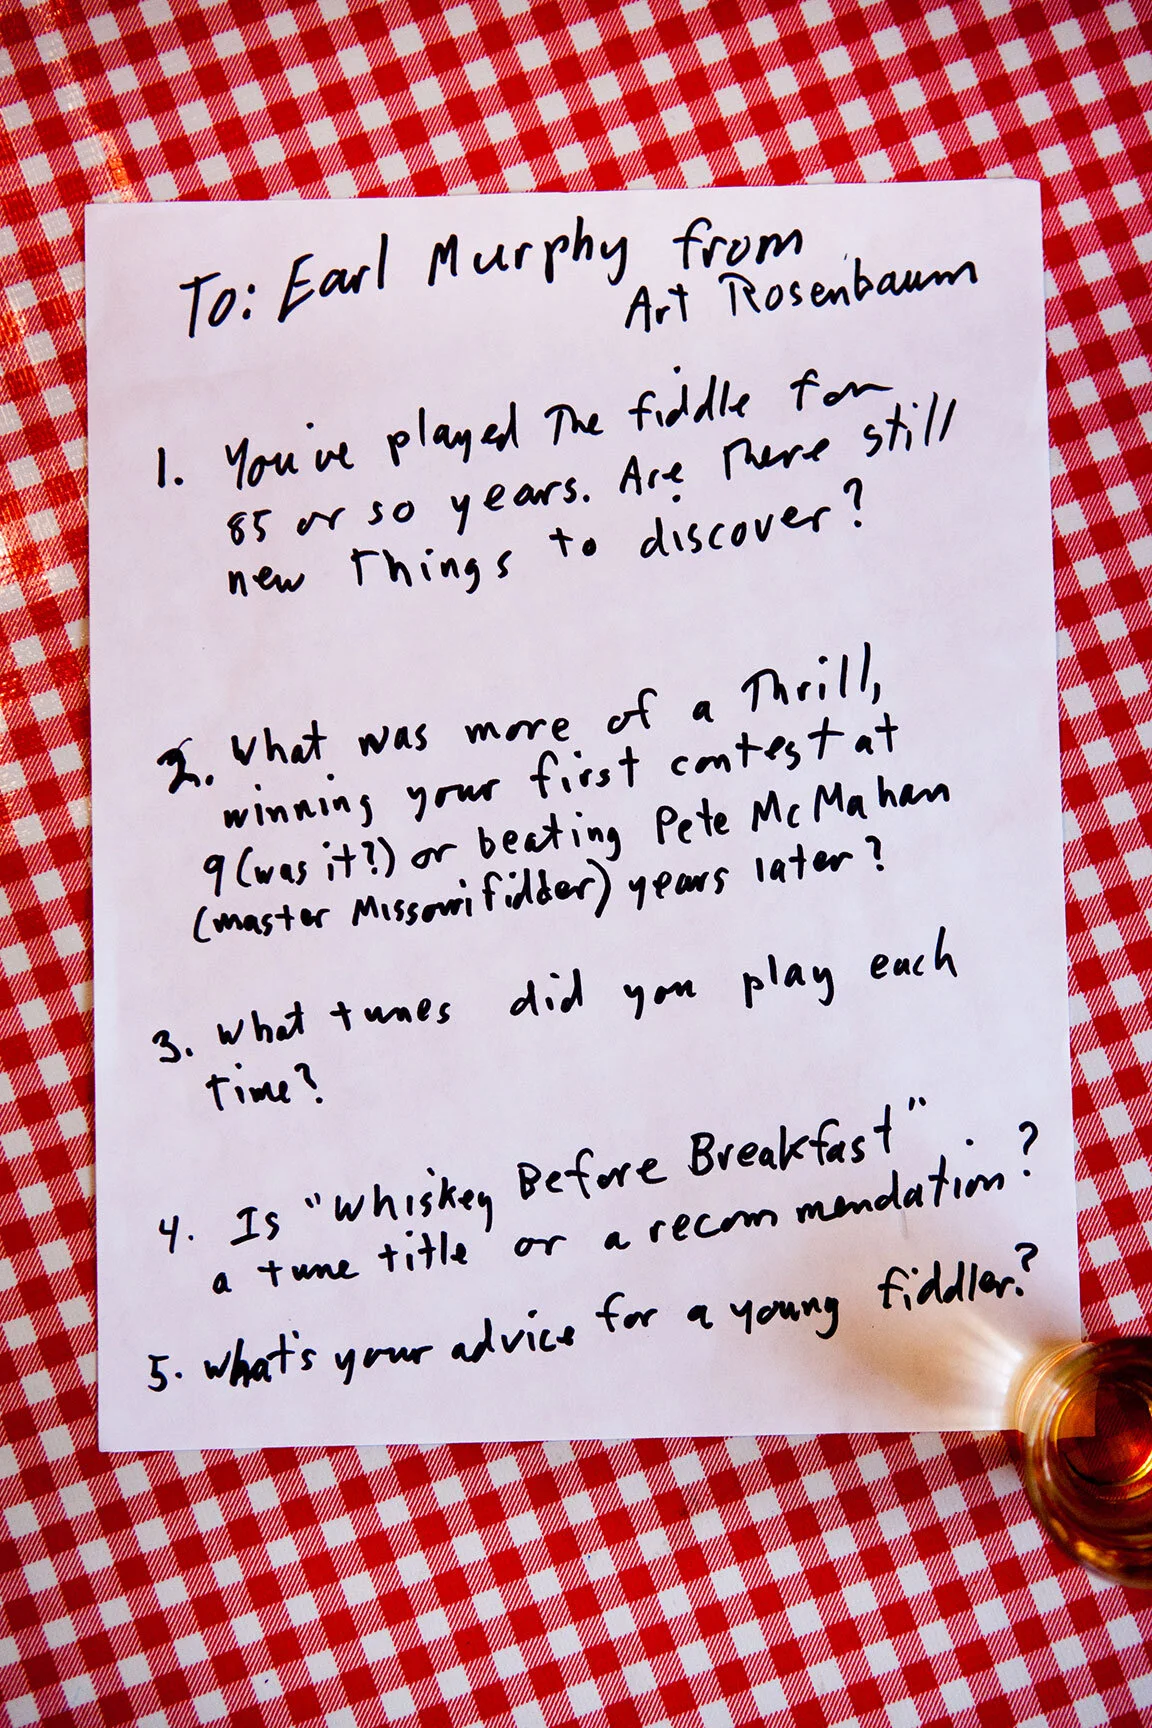 To: Earl Murphy from
Art Rosenbaum
1. You've played The fiddle for
85 or so years. Are There still
new Things to discover?
2. What was more of a Thrill,
winning your first contest at
9 (was it?) or beating Pete McMahan
(master Missouri fiddler) years later?
3. What tunes did you play each
time?
4. Is "Whiskey Before Breakfast"
a tune title or a recommendation?
5. What's your advice for a young fiddler?